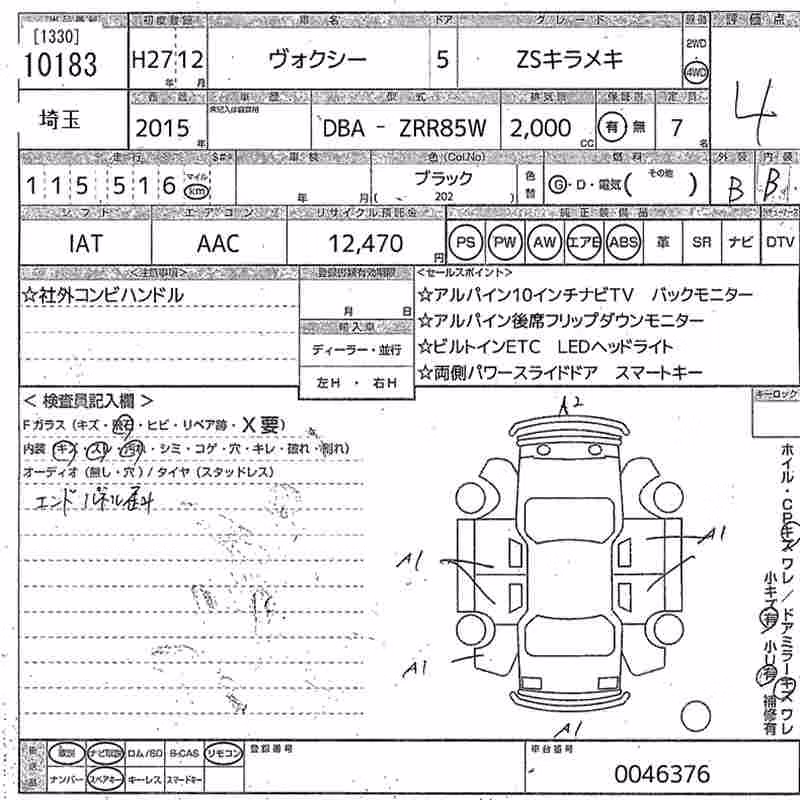 初度登録 車名 ドア グレード 評価点
[1330]
10183 H27 12 ヴォクシー 5 ZSキラメキ 2WD 4WD
年 月
4
埼玉
車歴 型式 排気量 定員
2015 年 DBA - ZRR85W 2,000 CC 有・無 7 名
走行 車検 色(Col.No) 燃料 外装 内装
115516 マイル km 年 月 ブラック ( 202 ) 色替 G・D・電気( その他 ) B B
シフト エアコン リサイクル預託金 純正装備品
IAT AAC 12,470 円 PS PW AW エアB ABS 革 SR ナビ DTV
<注意事項> 登録書類有効期限 <セールスポイント>
☆社外コンビハンドル
月 日
☆アルパイン10インチナビTV バックモニター
☆アルパイン後席フリップダウンモニター
☆ビルトインETC LEDヘッドライト
☆両側パワースライドドア スマートキー
輸入車
ディーラー・並行
左H ・ 右H
< 検査員記入欄 >
Fガラス (キズ・飛石・ヒビ・リペア跡・X要)
内装 (キズ・スレ・汚れ・シミ・コゲ・穴・キレ・破れ・削れ)
オーディオ (無し・穴) / タイヤ (スタッドレス)
エンドパネル歪み
キーロック
A2
A1
A1
A1
A1
ホイル・CPキズ ワレ / ドアミラーキズ ワレ
小キズ有 小U有 補修有
取説 ナビ取説 ロム/SD B-CAS リモコン
ナンバー スペアキー キーレス スマートキー
登録番号
車台番号
0046376